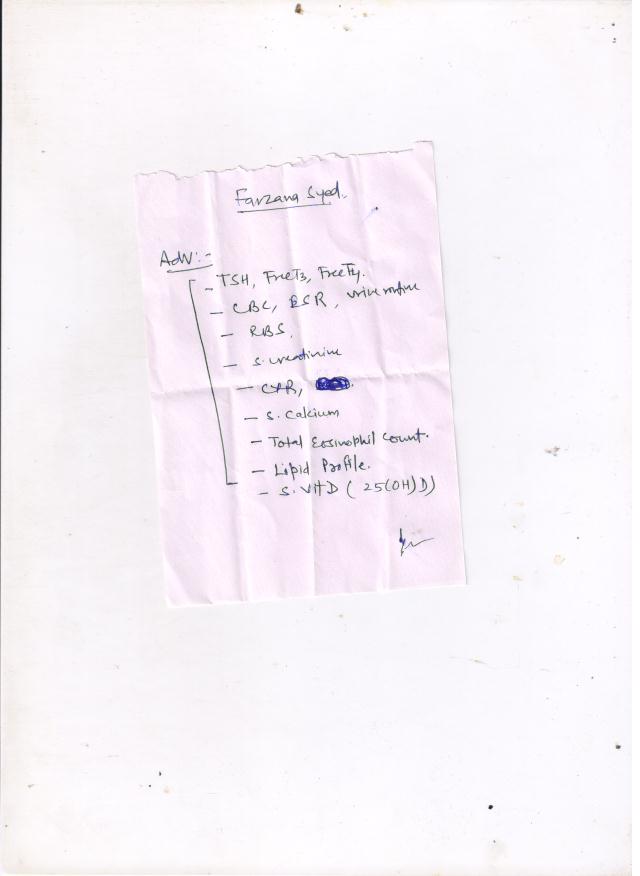 Farzana Syed.
Adv:-
- TSH, FreeT3, FreeT4.
- CBC, ESR, urine routine
- RBS,
- S. creatinine
- CXR,
- S. Calcium
- Total Eosinophil Count.
- Lipid Profile.
- S. Vit D ( 25(OH) D)